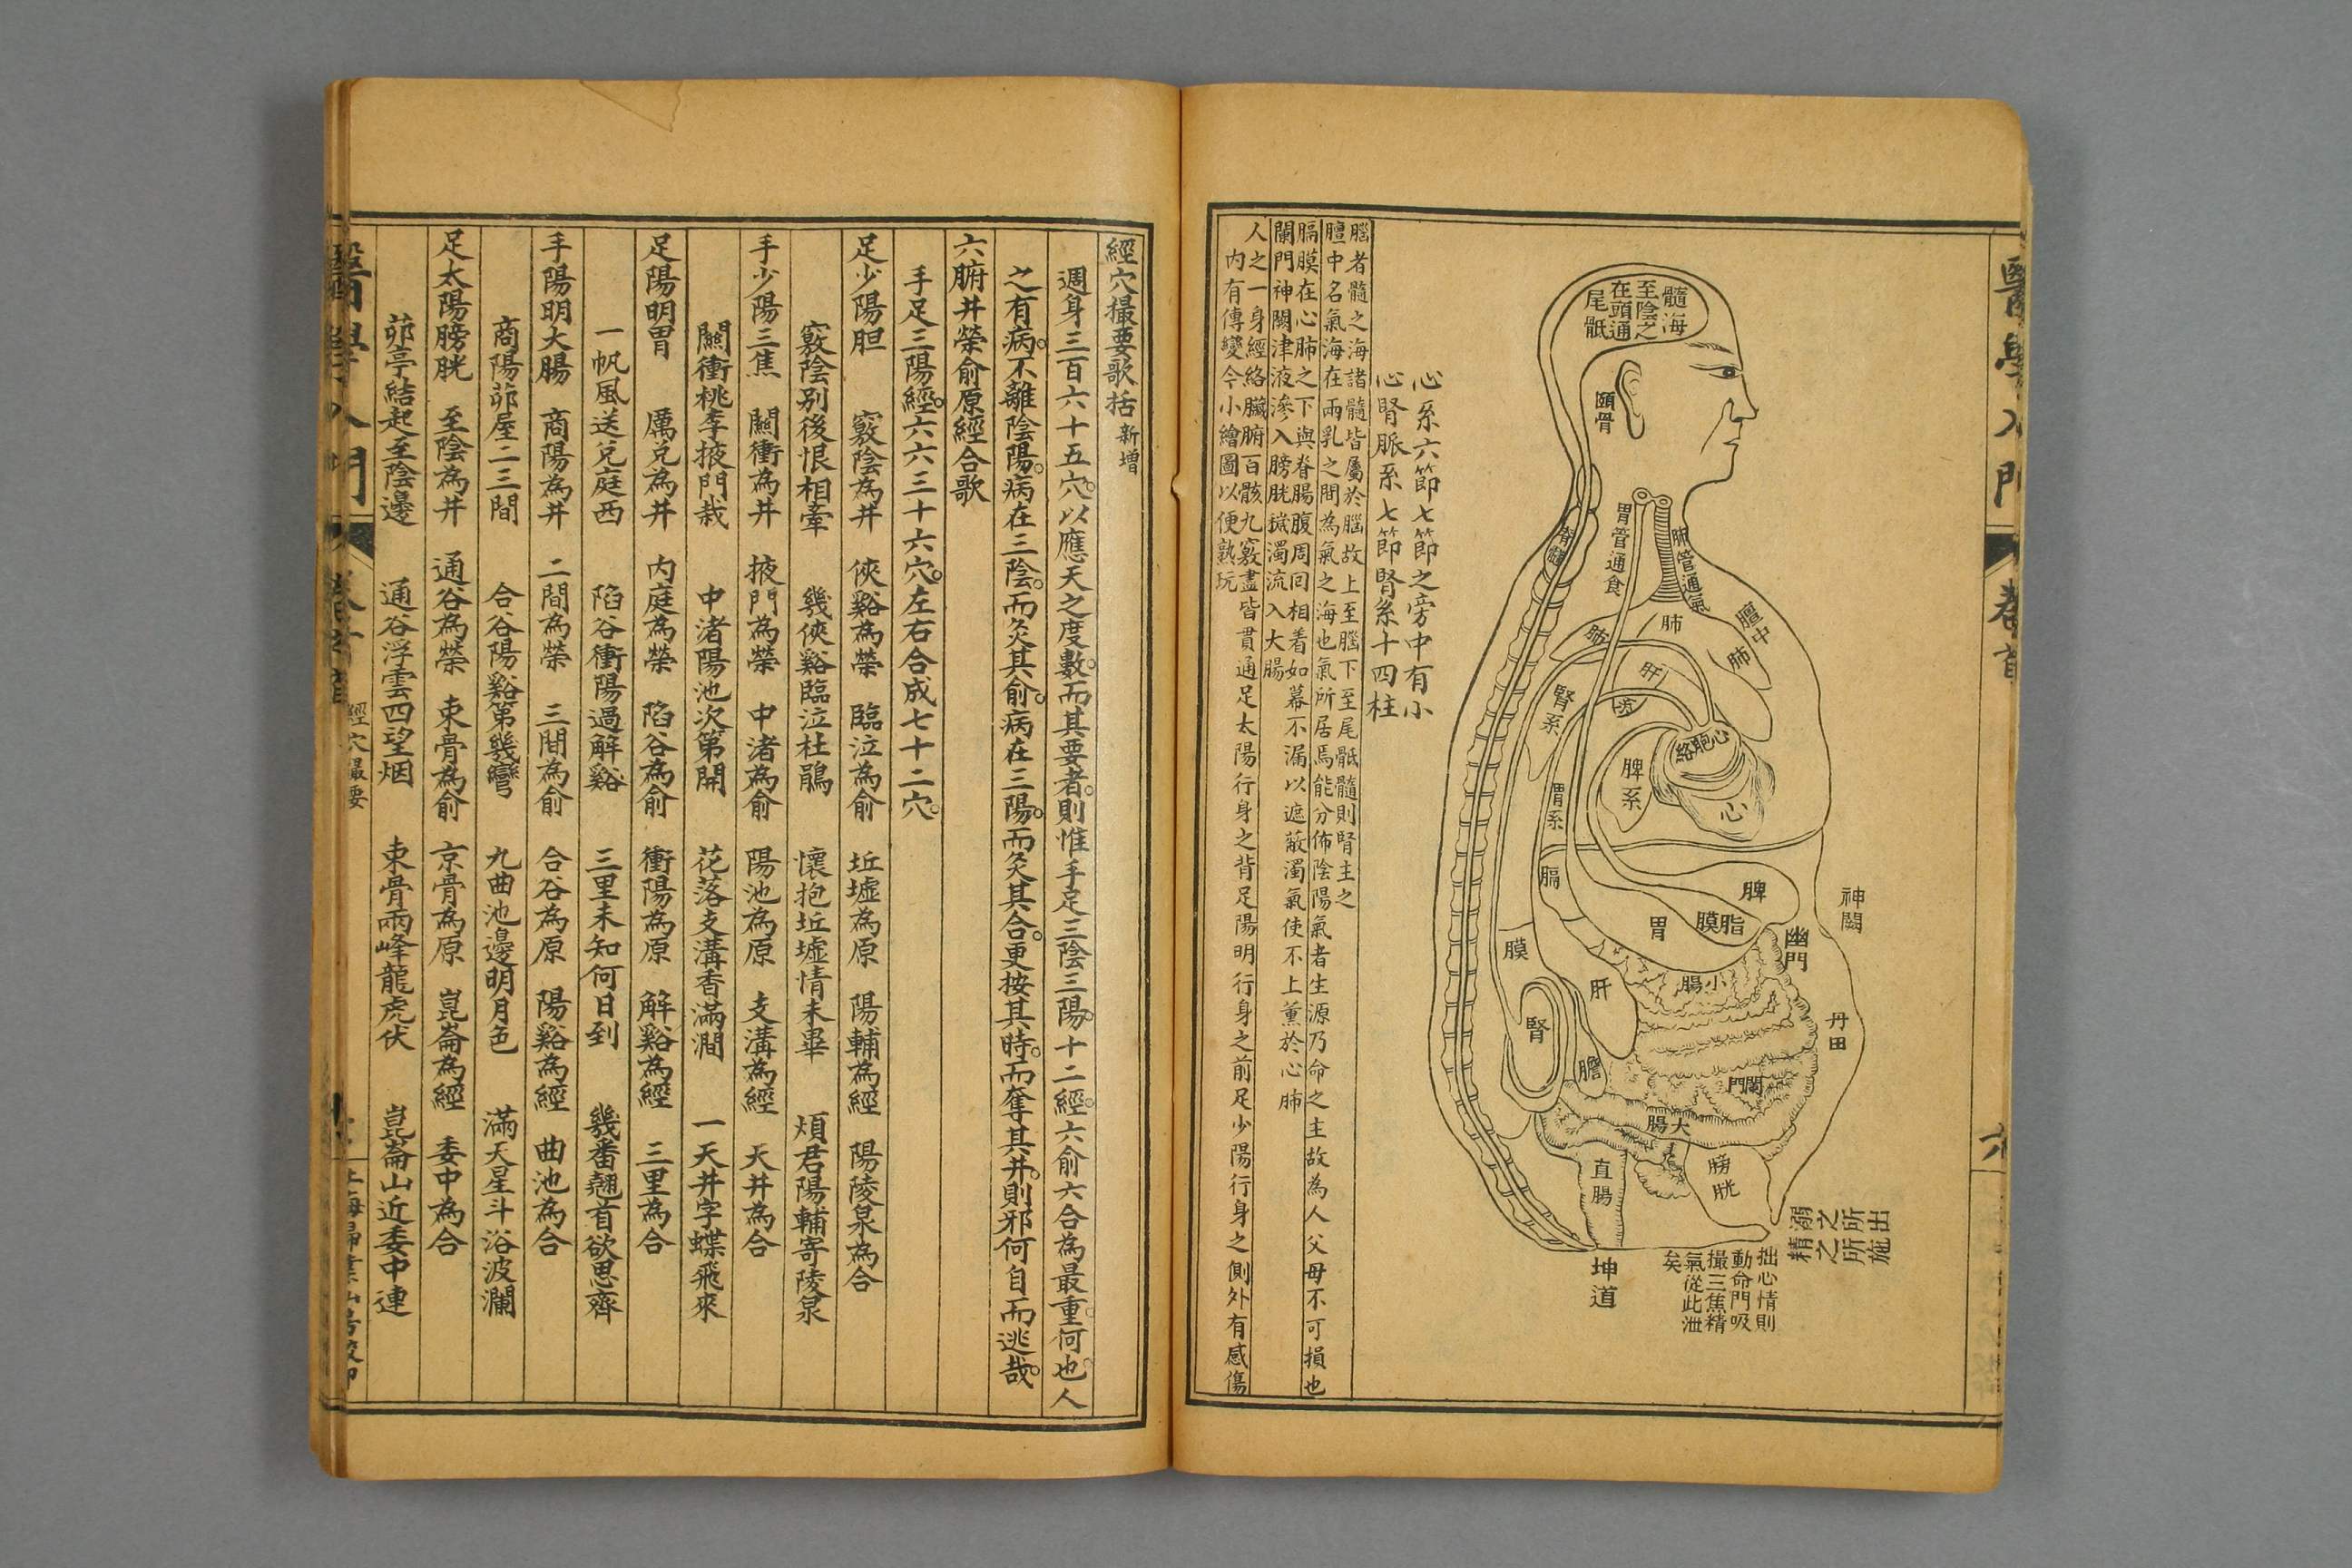 醫學入門
卷首
髓海
至陰之
在頭通
尾骶
頤骨
脊髓
胃管通食
肺管通氣
膻中
肺
肺
肺
肝
腎系
心胞絡
心
脾系
胃系
膈
脾
脂膜
胃
膜
神闕
幽門
肝
小腸
腎
膽
丹田
闌門
大腸
直腸
膀胱
溺之所出
精之所施
坤道
拙心情則
動命門吸
撮三焦精
氣從此泄
矣
心系六節七節之旁中有小
心腎脈系七節腎系十四柱
腦者髓之海諸髓皆屬於腦故上至腦下至尾骶髓則腎主之
膻中名氣海在兩乳之間為氣之海也氣所居焉能分佈陰陽氣者生源乃命之主故為人父母不可損也
膈膜在心肺之下與脊腸腹周回相着如幕不漏以遮蔽濁氣使不上薰於心肺
闌門神闕津液滲入膀胱濁流入大腸
人之一身經絡臟腑百骸九竅盡皆貫通足太陽行身之背足陽明行身之前足少陽行身之側外有感傷
內有傳變今小繪圖以便熟玩
經穴撮要歌括 新增
週身三百六十五穴。以應天之度數。而其要者。則惟手足三陰三陽。十二經。六俞六合為最重。何也。人
之有病。不離陰陽。病在三陰。而灸其俞。病在三陽。而灸其合。更按其時。而奪其井。則邪何自而逃哉。
六腑井滎俞原經合歌
手足三陽經。六六三十六穴。左右合成七十二穴。
足少陽胆 竅陰為井 俠谿為滎 臨泣為俞 坵墟為原 陽輔為經 陽陵泉為合
竅陰別後恨相牽 幾俠谿臨泣杜鵑 懷抱坵墟情未畢 煩君陽輔寄陵泉
手少陽三焦 關衝為井 掖門為滎 中渚為俞 陽池為原 支溝為經 天井為合
關衝桃李掖門栽 中渚陽池次第開 花落支溝香滿澗 一天井字蝶飛來
足陽明胃 厲兌為井 內庭為滎 陷谷為俞 衝陽為原 解谿為經 三里為合
一帆風送兌庭西 陷谷衝陽過解谿 三里未知何日到 幾番翹首欲思齊
手陽明大腸 商陽為井 二間為滎 三間為俞 合谷為原 陽谿為經 曲池為合
商陽茆屋二三間 合谷陽谿第幾彎 九曲池邊明月色 滿天星斗浴波瀾
足太陽膀胱 至陰為井 通谷為滎 束骨為俞 京骨為原 崑崙為經 委中為合
茆亭結起至陰邊 通谷浮雲四望烟 束骨兩峰龍虎伏 崑崙山近委中連
醫學入門
卷首
經穴撮要